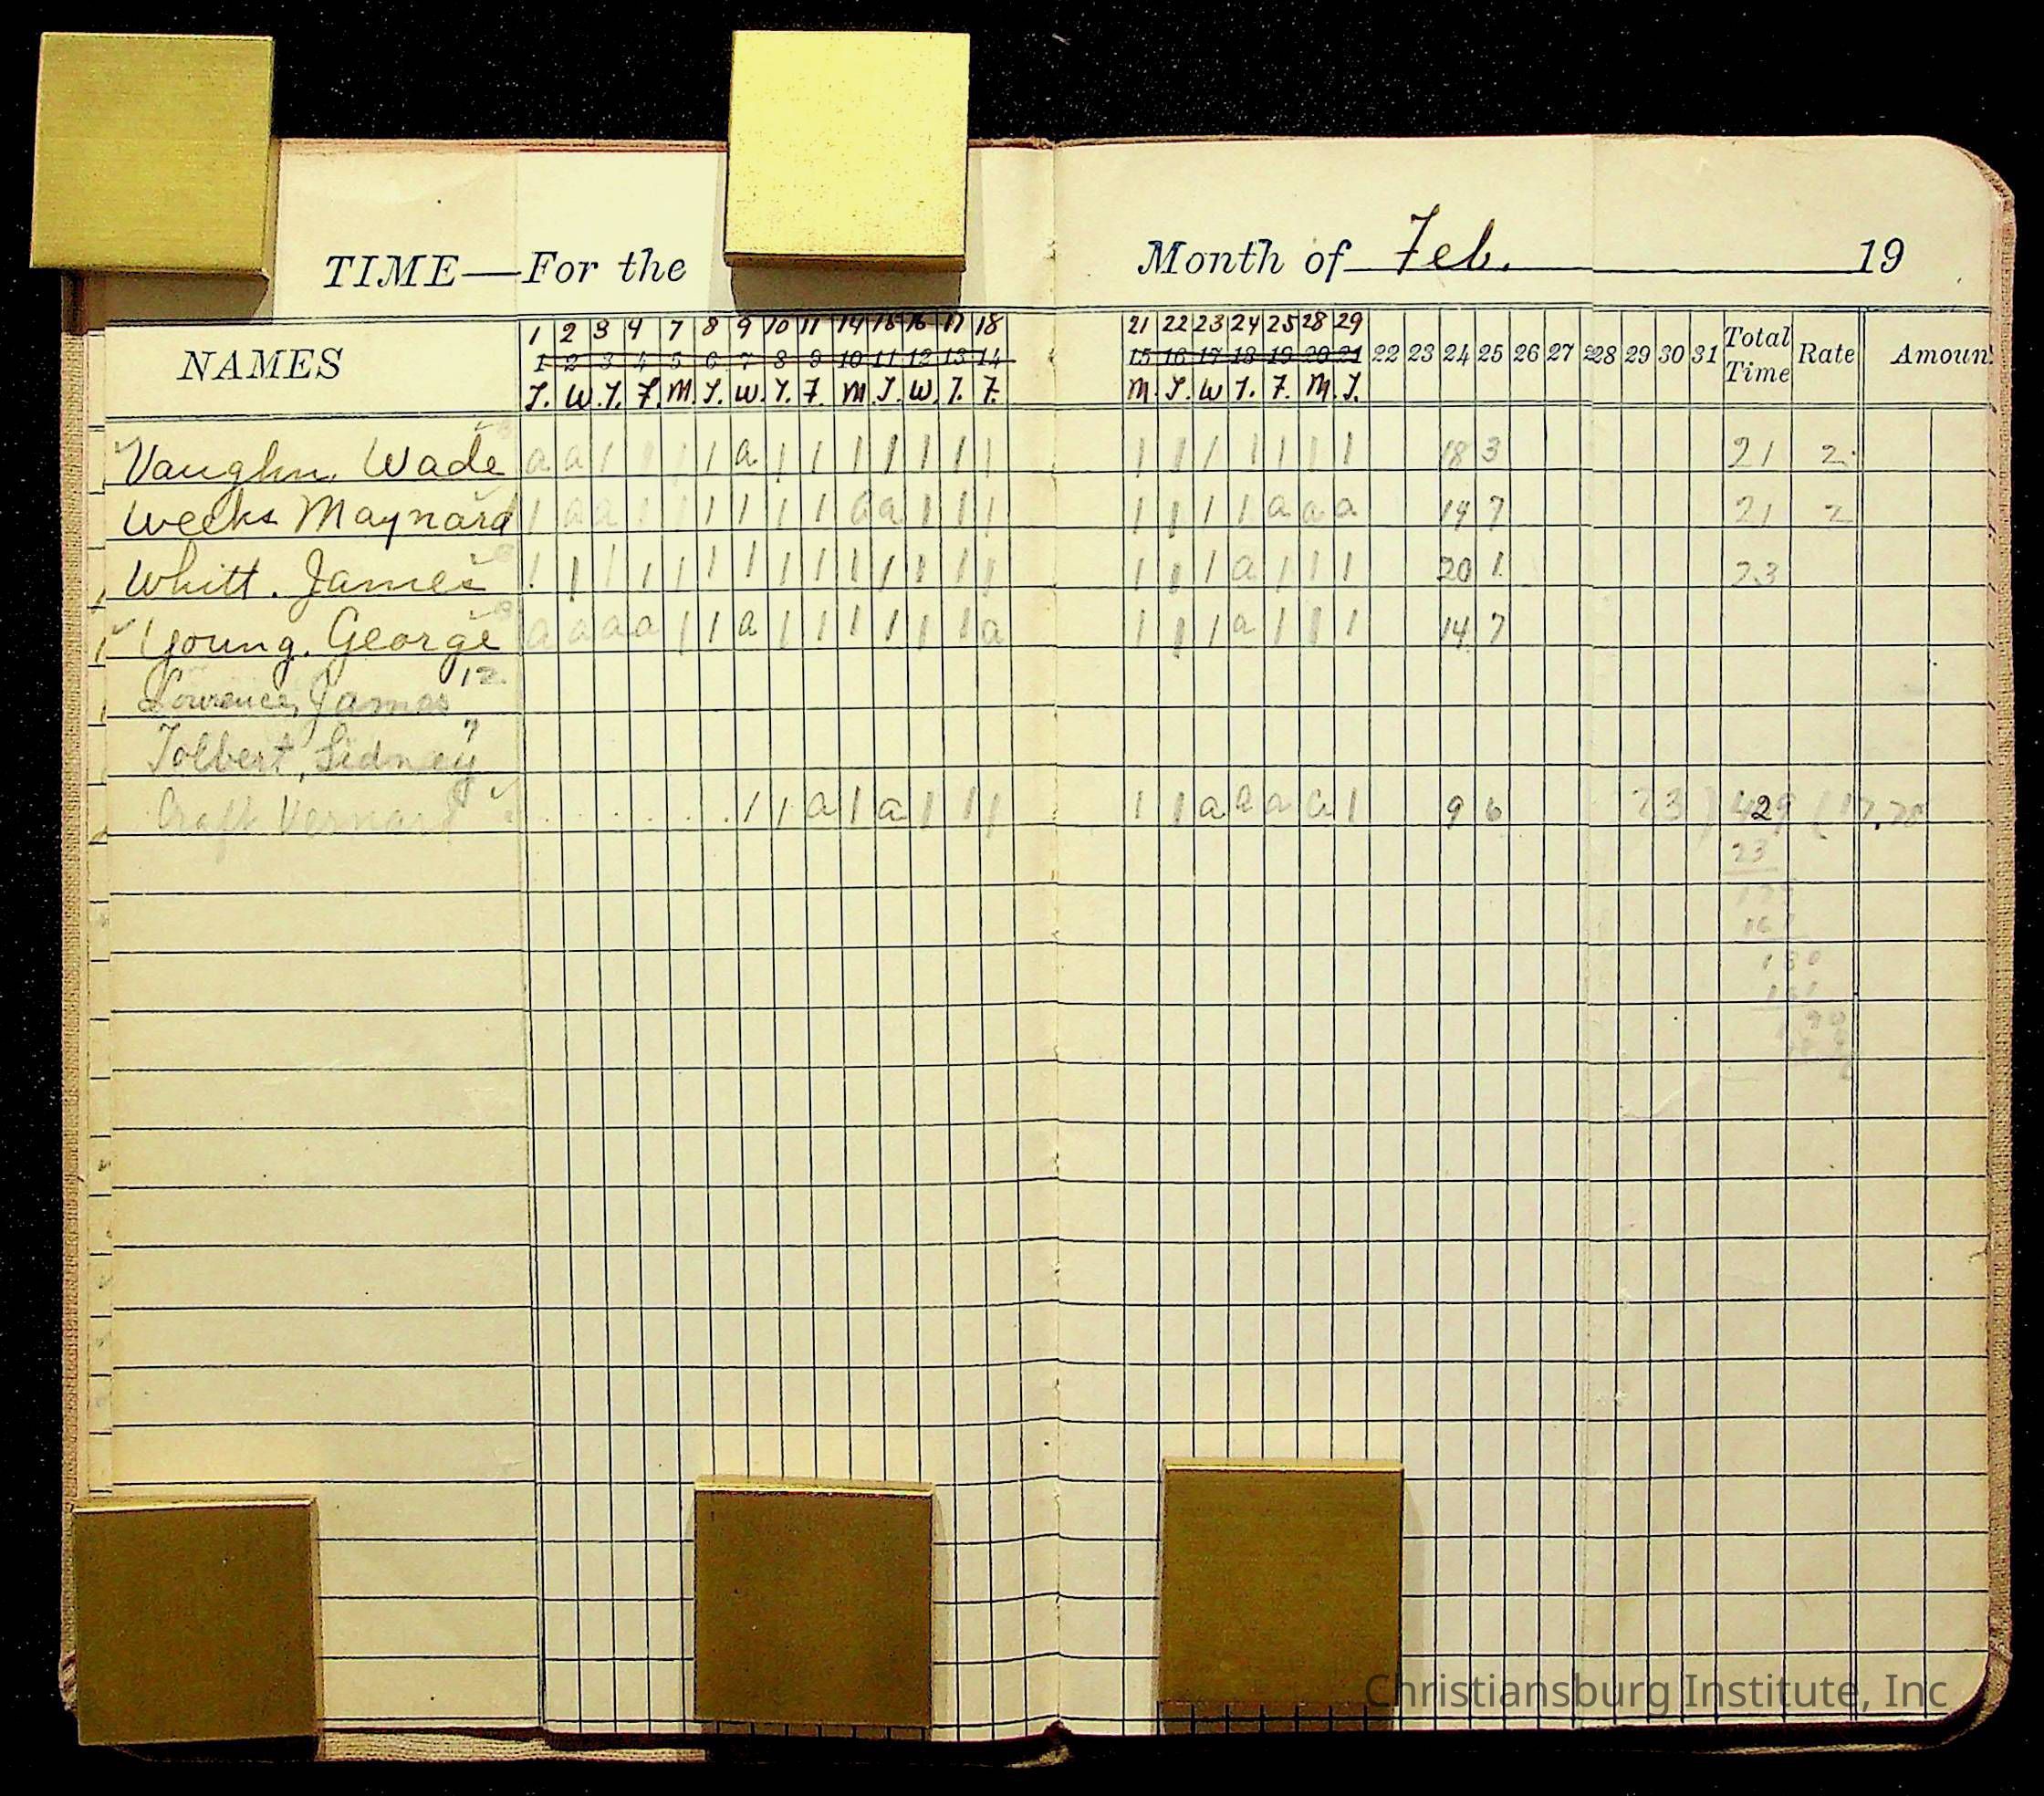 TIME—For the Month of Feb. 19
NAMES 1 2 3 4 7 8 9 10 11 14 15 16 17 18 21 22 23 24 25 28 29
1 2 3 4 5 6 7 8 9 10 11 12 13 14 15 16 17 18 19 20 21 22 23 24 25 26 27 28 29 30 31 Total Time Rate Amoun
T. W. T. F. M. T. W. T. F. M T. W. T. F. M. T. W T. F. M. T.
Vaughn, Wade a a 1 1 1 1 a 1 1 1 1 1 1 1 1 1 1 1 1 1 1 18 3 21 2
Weeks Maynard 1 a a 1 1 1 1 1 1 a a 1 1 1 1 1 1 1 a a a 14 7 21 2
Whitt. James 1 1 1 1 1 1 1 1 1 1 1 1 1 1 1 1 1 a 1 1 1 20 1 23
Young. George a a a a 1 1 a 1 1 1 1 1 1 a 1 1 1 a 1 1 1 14 7
Lowrence, James 12
Tolbert, Sidney 7
Craft Vernard . . . . . . 1 1 a 1 a 1 1 1 1 1 a a a a 1 9 6 23 ) 429 (
23
Christiansburg Institute, Inc